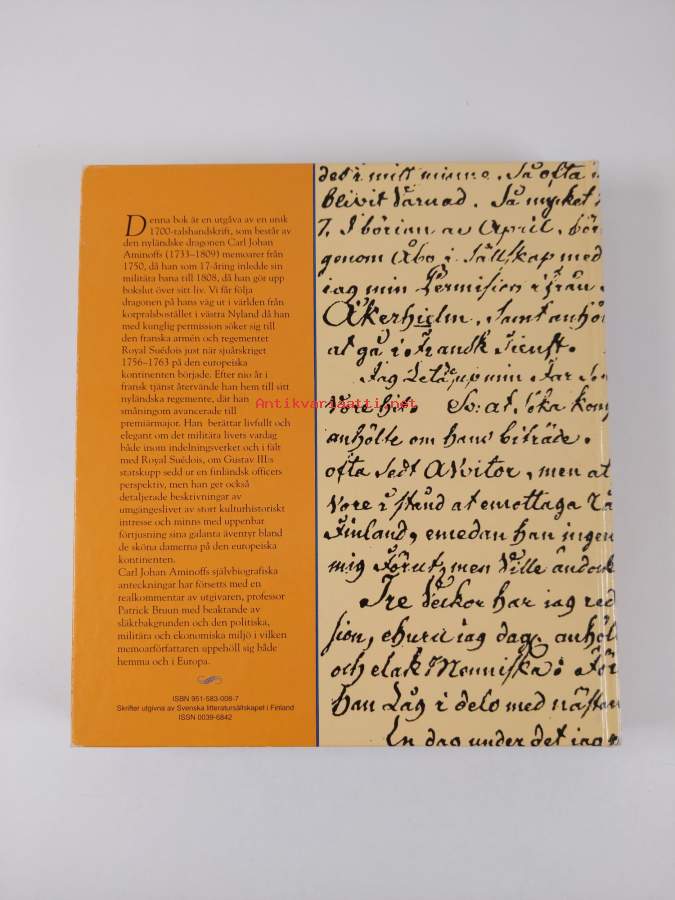 Denna bok är en utgåva av en unik
1700-talshandskrift, som består av
den nyländske dragonen Carl Johan
Aminoffs (1733–1809) memoarer från
1750, då han som 17-åring inledde sin
militära bana till 1808, då han gör upp
bokslut över sitt liv. Vi får följa
dragonen på hans väg ut i världen från
korpralsbostället i västra Nyland då han
med kunglig permission söker sig till
den franska armén och regementet
Royal Suédois just när sjuårskriget
1756–1763 på den europeiska
kontinenten började. Efter nio år i
fransk tjänst återvände han hem till sitt
nyländska regemente, där han
småningom avancerade till
premiärmajor. Han berättar livfullt och
elegant om det militära livets vardag
både inom indelningsverket och i fält
med Royal Suédois, om Gustav III:s
statskupp sedd ur en finländsk officers
perspektiv, men han ger också
detaljerade beskrivningar av
umgängeslivet av stort kulturhistoriskt
intresse och minns med uppenbar
förtjusning sina galanta äventyr bland
de sköna damerna på den europeiska
kontinenten.
Carl Johan Aminoffs självbiografiska
anteckningar har försetts med en
realkommentar av utgivaren, professor
Patrick Bruun med beaktande av
släktbakgrunden och den politiska,
militära och ekonomiska miljö i vilken
memoarförfattaren uppehöll sig både
hemma och i Europa.
ISBN 951-583-008-7
Skrifter utgivna av Svenska litteratursällskapet i Finland
ISSN 0039-6842
det i mitt minne. Så ofta
blivit Vårnad. Så mycket
7. I börian av April, bör
genom Åbo i Sällskap med
iag min Permission ifrån
Åkerhielm, Samt anhöl
at gå i Fransk Tienst.
Iag min Far
Vore at Söka
anhölte om hans biträde.
ofta Sedt Avitor, men at
Vore i Stånd at emottaga
Finland, emedan han ingen
mig Förut, men Ville ändock
Tre Veckor har iag
sion, ehuru iag dag. anhöl
och elak Menniska: För
han Låg i delo med nästan
En dag under det iag
Antikvariaatti.net